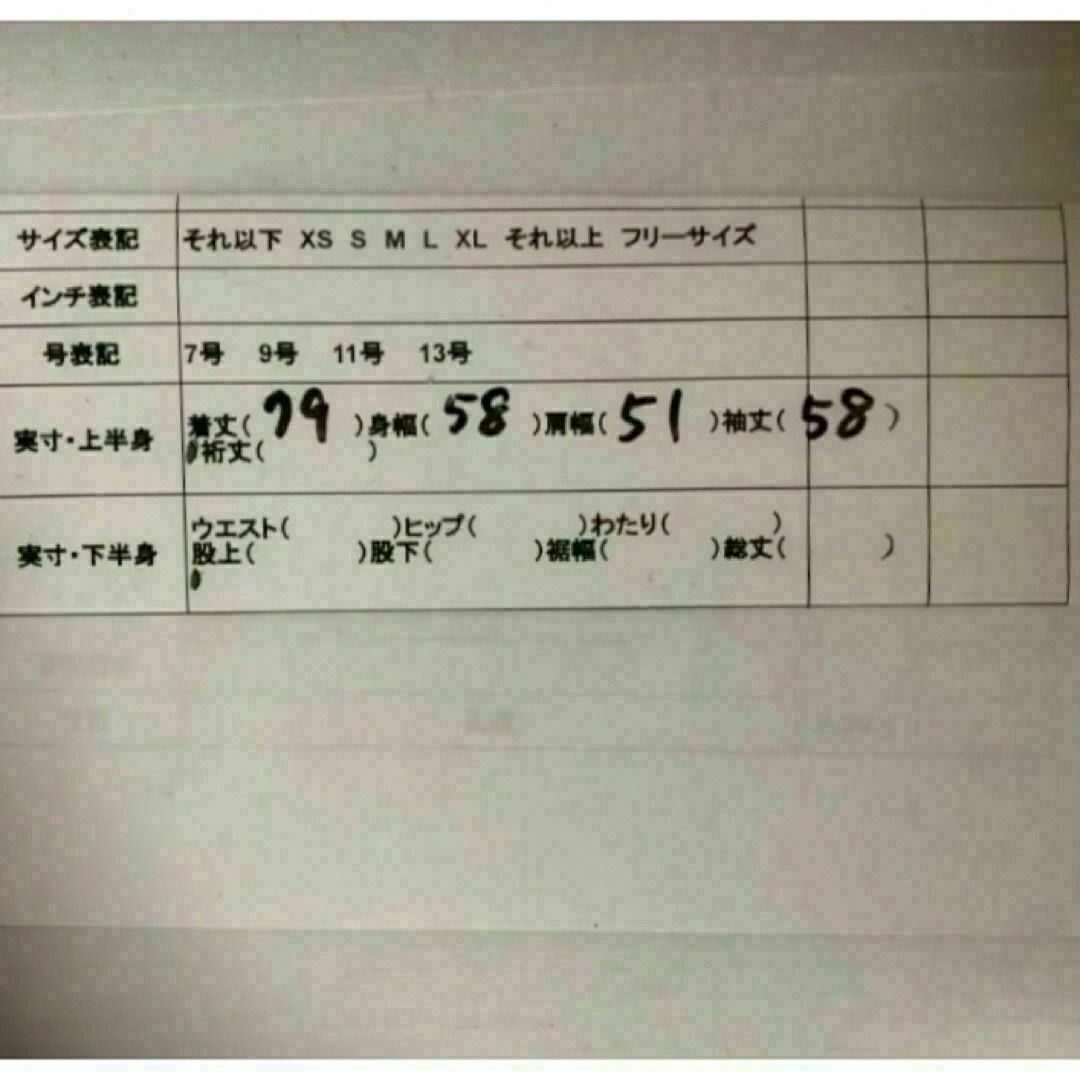 サイズ表記 それ以下 XS S M L XL それ以上 フリーサイズ
インチ表記
号表記 7号 9号 11号 13号
実寸・上半身 着丈( 79 )身幅( 58 )肩幅( 51 )袖丈( 58 )
裄丈( )
実寸・下半身 ウエスト( )ヒップ( )わたり( )
股上( )股下( )裾幅( )総丈( )